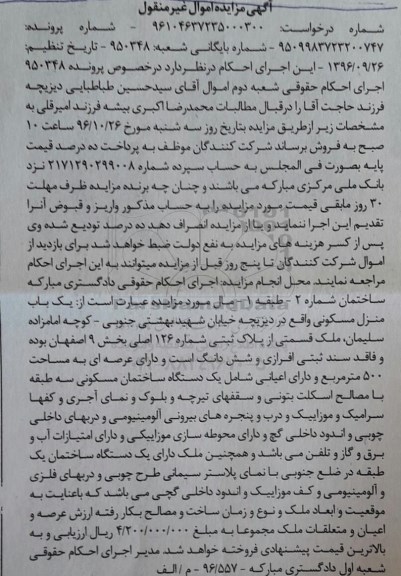 آگهی مزایده اموال غیر منقول
شماره درخواست: ۹۶۱۰۴۶۳۷۲۳۵۰۰۰۳۰۰ - شماره پرونده:
۹۵۰۹۹۸۳۷۲۳۲۰۰۷۴۷ - شماره بایگانی شعبه: ۹۵۰۳۴۸ - تاریخ تنظیم:
۱۳۹۶/۰۹/۲۶ - این اجرای احکام در نظر دارد در خصوص پرونده ۹۵۰۳۴۸
اجرای احکام حقوقی شعبه دوم اموال آقای سید حسین طباطبایی دیزیچه
فرزند حاجت آقا را در قبال مطالبات محمدرضا اکبری بیشه فرزند امیرقلی به
مشخصات زیر از طریق مزایده بتاریخ روز سه شنبه مورخ ۹۶/۱۰/۲۶ ساعت ۱۰
صبح به فروش برساند شرکت کنندگان موظف به پرداخت ده درصد قیمت
پایه بصورت فی المجلس به حساب سپرده شماره ۲۱۷۱۲۹۰۲۹۹۰۰۸ نزد
بانک ملی مرکزی مبارکه می باشند و چنان چه برنده مزایده ظرف مهلت
۳۰ روز مابقی قیمت مورد مزایده را به حساب مذکور واریز و قبوض آنرا
تقدیم این اجرا ننماید و یا از مزایده انصراف دهد ده درصد تودیع شده وی
پس از کسر هزینه های مزایده به نفع دولت ضبط خواهد شد برای بازدید از
اموال شرکت کنندگان تا پنج روز قبل از مزایده میتوانند به این اجرای احکام
مراجعه نمایند. محل انجام مزایده: اجرای احکام حقوقی دادگستری مبارکه
ساختمان شماره ۲ - طبقه ۱ - مال مورد مزایده عبارت است از: یک باب
منزل مسکونی واقع در دیزیچه خیابان شهید بهشتی جنوبی - کوچه امامزاده
سلیمان، ملک قسمتی از پلاک ثبتی شماره ۱۲۶ اصلی بخش ۹ اصفهان بوده
و فاقد سند ثبتی افرازی و شش دانگ است و دارای عرصه ای به مساحت
۵۰۰ مترمربع و دارای اعیانی شامل یک دستگاه ساختمان مسکونی سه طبقه
با مصالح اسکلت بتونی و سقفهای تیرچه و بلوک و نمای آجری و کفها
سرامیک و موزاییک و درب و پنجره های بیرونی آلومینیومی و دربهای داخلی
چوبی و اندود داخلی گچ و دارای محوطه سازی موزاییکی و دارای امتیازات آب و
برق و گاز و تلفن می باشد و همچنین ملک دارای یک دستگاه ساختمان یک
طبقه در ضلع جنوبی با نمای پلاستر سیمانی طرح چوبی و دربهای فلزی
و آلومینیومی و کف موزاییک و اندود داخلی گچی می باشد که با عنایت به
موقعیت و ابعاد ملک و نوع و زمان ساخت و مصالح بکار رفته ارزش عرصه و
اعیان و متعلقات ملک مجموعا به مبلغ ۴/۲۰۰/۰۰۰/۰۰۰ ریال ارزیابی و به
بالاترین قیمت پیشنهادی فروخته خواهد شد. مدیر اجرای احکام حقوقی
شعبه اول دادگستری مبارکه - ۹۶/۵۵۷ - م / الف